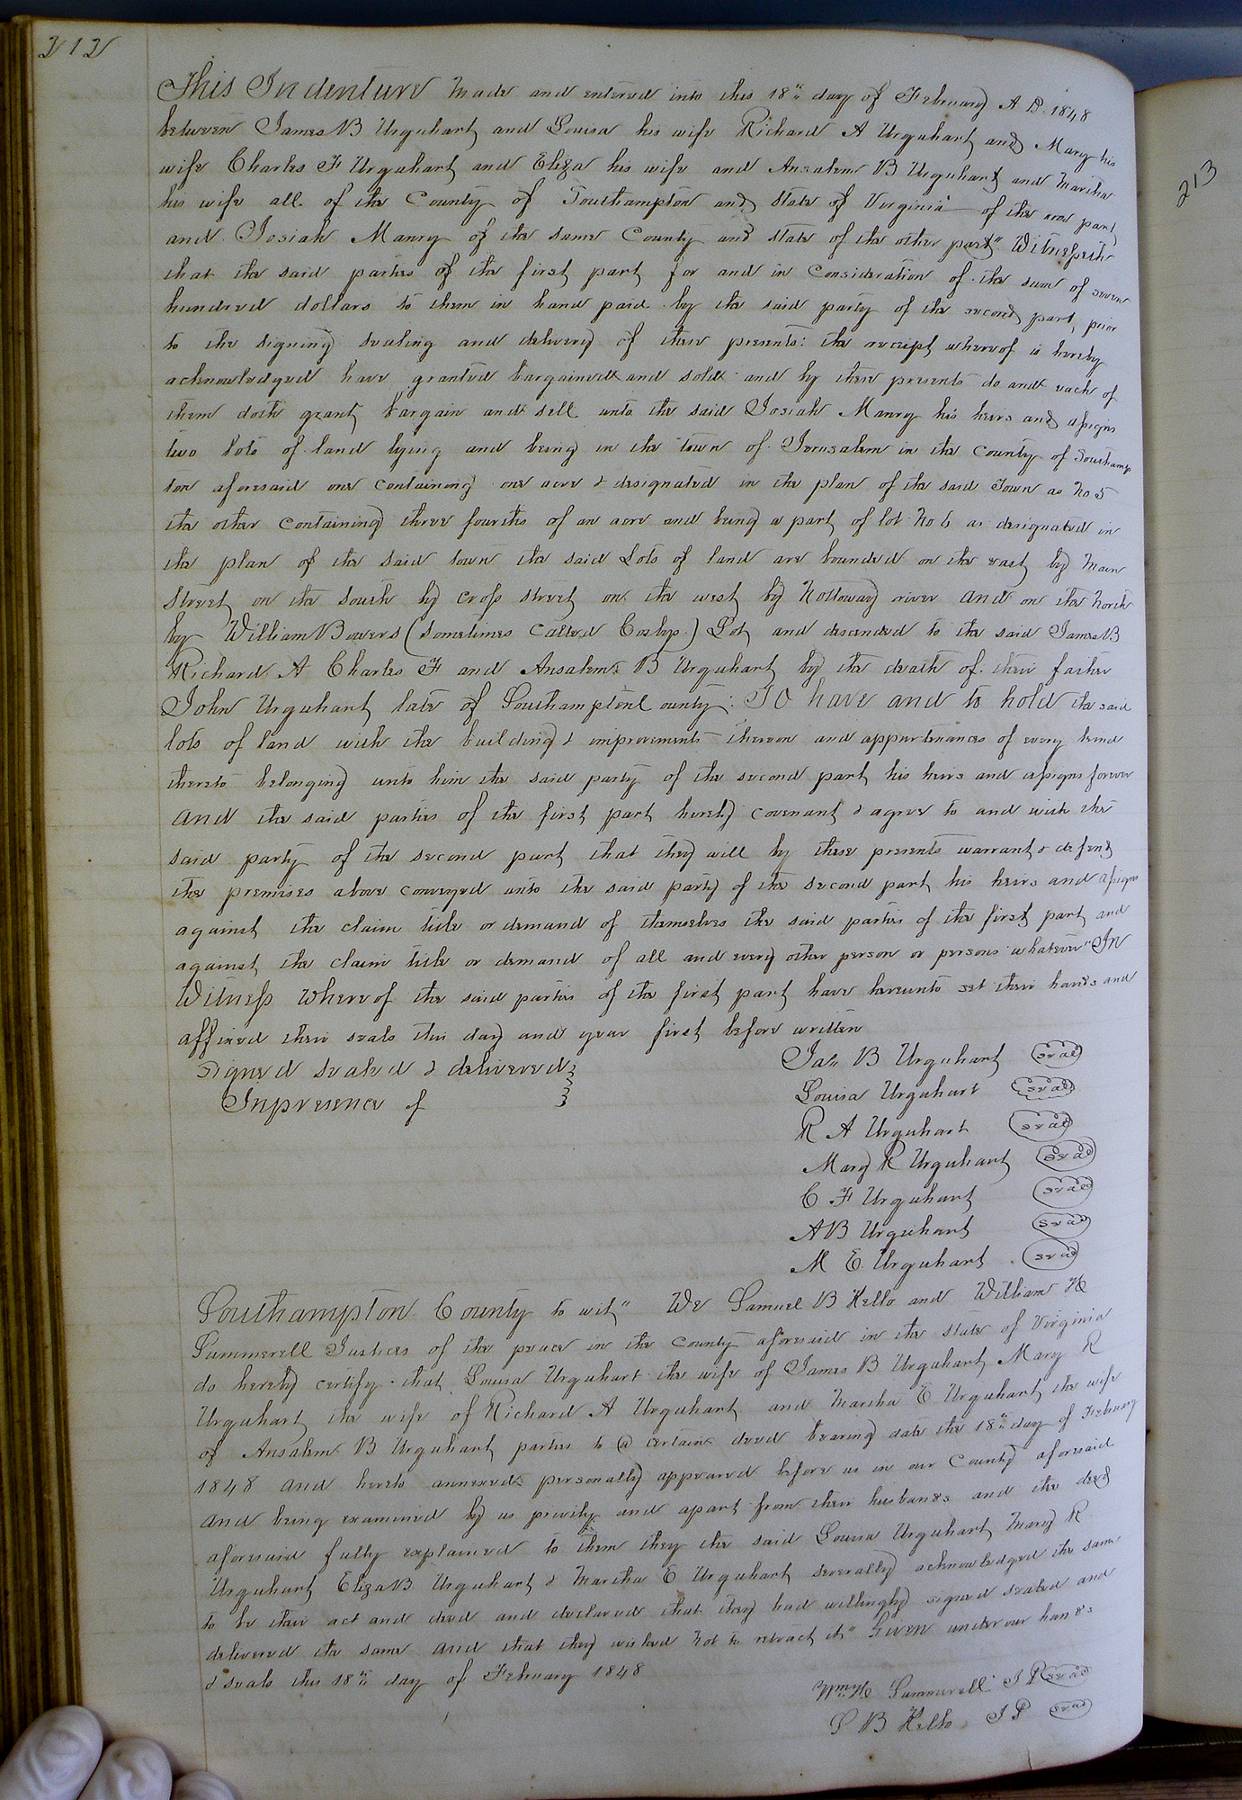 212
This Indenture made and entered into this 18th day of February A D. 1848
between James B Urquhart and Louisa his wife Richard A Urquhart and Mary his
wife Charles F Urquhart and Eliza his wife and Ansalem B Urquhart and Martha
his wife all of the County of Southampton and State of Virginia of the one part
and Josiah Manry of the same County and state of the other part" Witnesseth
that the said parties of the first part for and in consideration of the sum of seven
hundred dollars to them in hand paid by the said party of the second part, prior
to the signing sealing and delivery of these presents: the receipt whereof is hereby
acknowledged have granted bargained and sold and by these presents do and each of
them doth grant bargain and sell unto the said Josiah Manry his heirs and assigns
two lots of land lying and being in the town of Jerusalem in the County of Southamp
ton aforesaid one containing one acre & designated in the plan of the said Town as No 5
the other containing three fourths of an acre and being a part of lot No 6 as designated in
the plan of the said town the said Lots of land are bounded on the east by Main
Street on the south by cross street on the west by Nottoway river and on the North
by William Bowers (sometimes called ) Lot and descended to the said James B
Richard A Charles F and Ansalem B Urquhart by the death of their father
John Urquhart late of Southampton County: To have and to hold the said
lots of land with the building & improvements thereon and appurtenances of every kind
thereto belonging unto him the said party of the second part his heirs and assigns forever
and the said parties of the first part hereby covenant & agree to and with the
said party of the second part that they will by these presents warrant & defend
the premises above conveyed unto the said party of the second part his heirs and assigns
against the claim title or demand of themselves the said parties of the first part and
against the claim title or demand of all and every other person or persons whatever" In
Witness whereof the said parties of the first part have hereunto set their hands and
affixed their seals this day and year first before written
Signed sealed & delivered }
In presence of }
Jas B Urquhart seal
Louisa Urquhart seal
R A Urquhart seal
Mary R Urquhart seal
C F Urquhart seal
A B Urquhart seal
M E Urquhart seal
Southampton County to wit" We Samuel B Kello and William H
Summerell Justices of the peace in the County aforesaid in the state of Virginia
do hereby certify that Louisa Urquhart the wife of James B Urquhart Mary R
Urquhart the wife of Richard A Urquhart and Martha E Urquhart the wife
of Ansalem B Urquhart parties to a certain deed bearing date the 18th day of February
1848 and hereto annexed personally appeared before us in our County aforesaid
and being examined by us privily and apart from their husbands and the deed
aforesaid fully explained to them they the said Louisa Urquhart Mary R
Urquhart Eliza B Urquhart & Martha E Urquhart severally acknowledged the same
to be their act and deed and declared that they had willingly signed sealed and
delivered the same and that they wished not to retract it" Given under our hands
& seals this 18th day of February 1848
Wm H Summerell J P seal
S B Kello J P seal
213